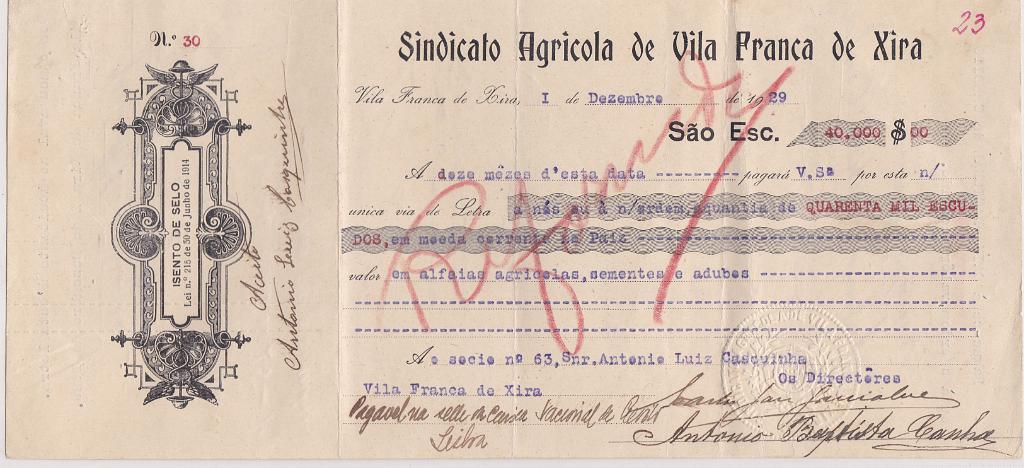 23
N.º 30
Sindicato Agricola de Vila Franca de Xira
Vila Franca de Xira, I de Dezembro de 1929
São Esc. 40.000 $ 00
A doze mêzes d'esta data -------- pagará V.Sª por esta n/
unica via de Letra a nós ou à n/ordem aquantia de QUARENTA MIL ESCU-
DOS, em moeda corrente do Paiz
valor em alfaias agricolas, sementes e adubos
Ao socio nº 63, Snr. Antonio Luiz Casquinha
Os Directôres
Vila Franca de Xira
Pagavel na
Nacional de
Lisboa
Antonio Baptista
ISENTO DE SELO
Lei n.º 215 de 30 de Junho de 1914
Aceito
Antonio Luiz Casquinha
Reformada